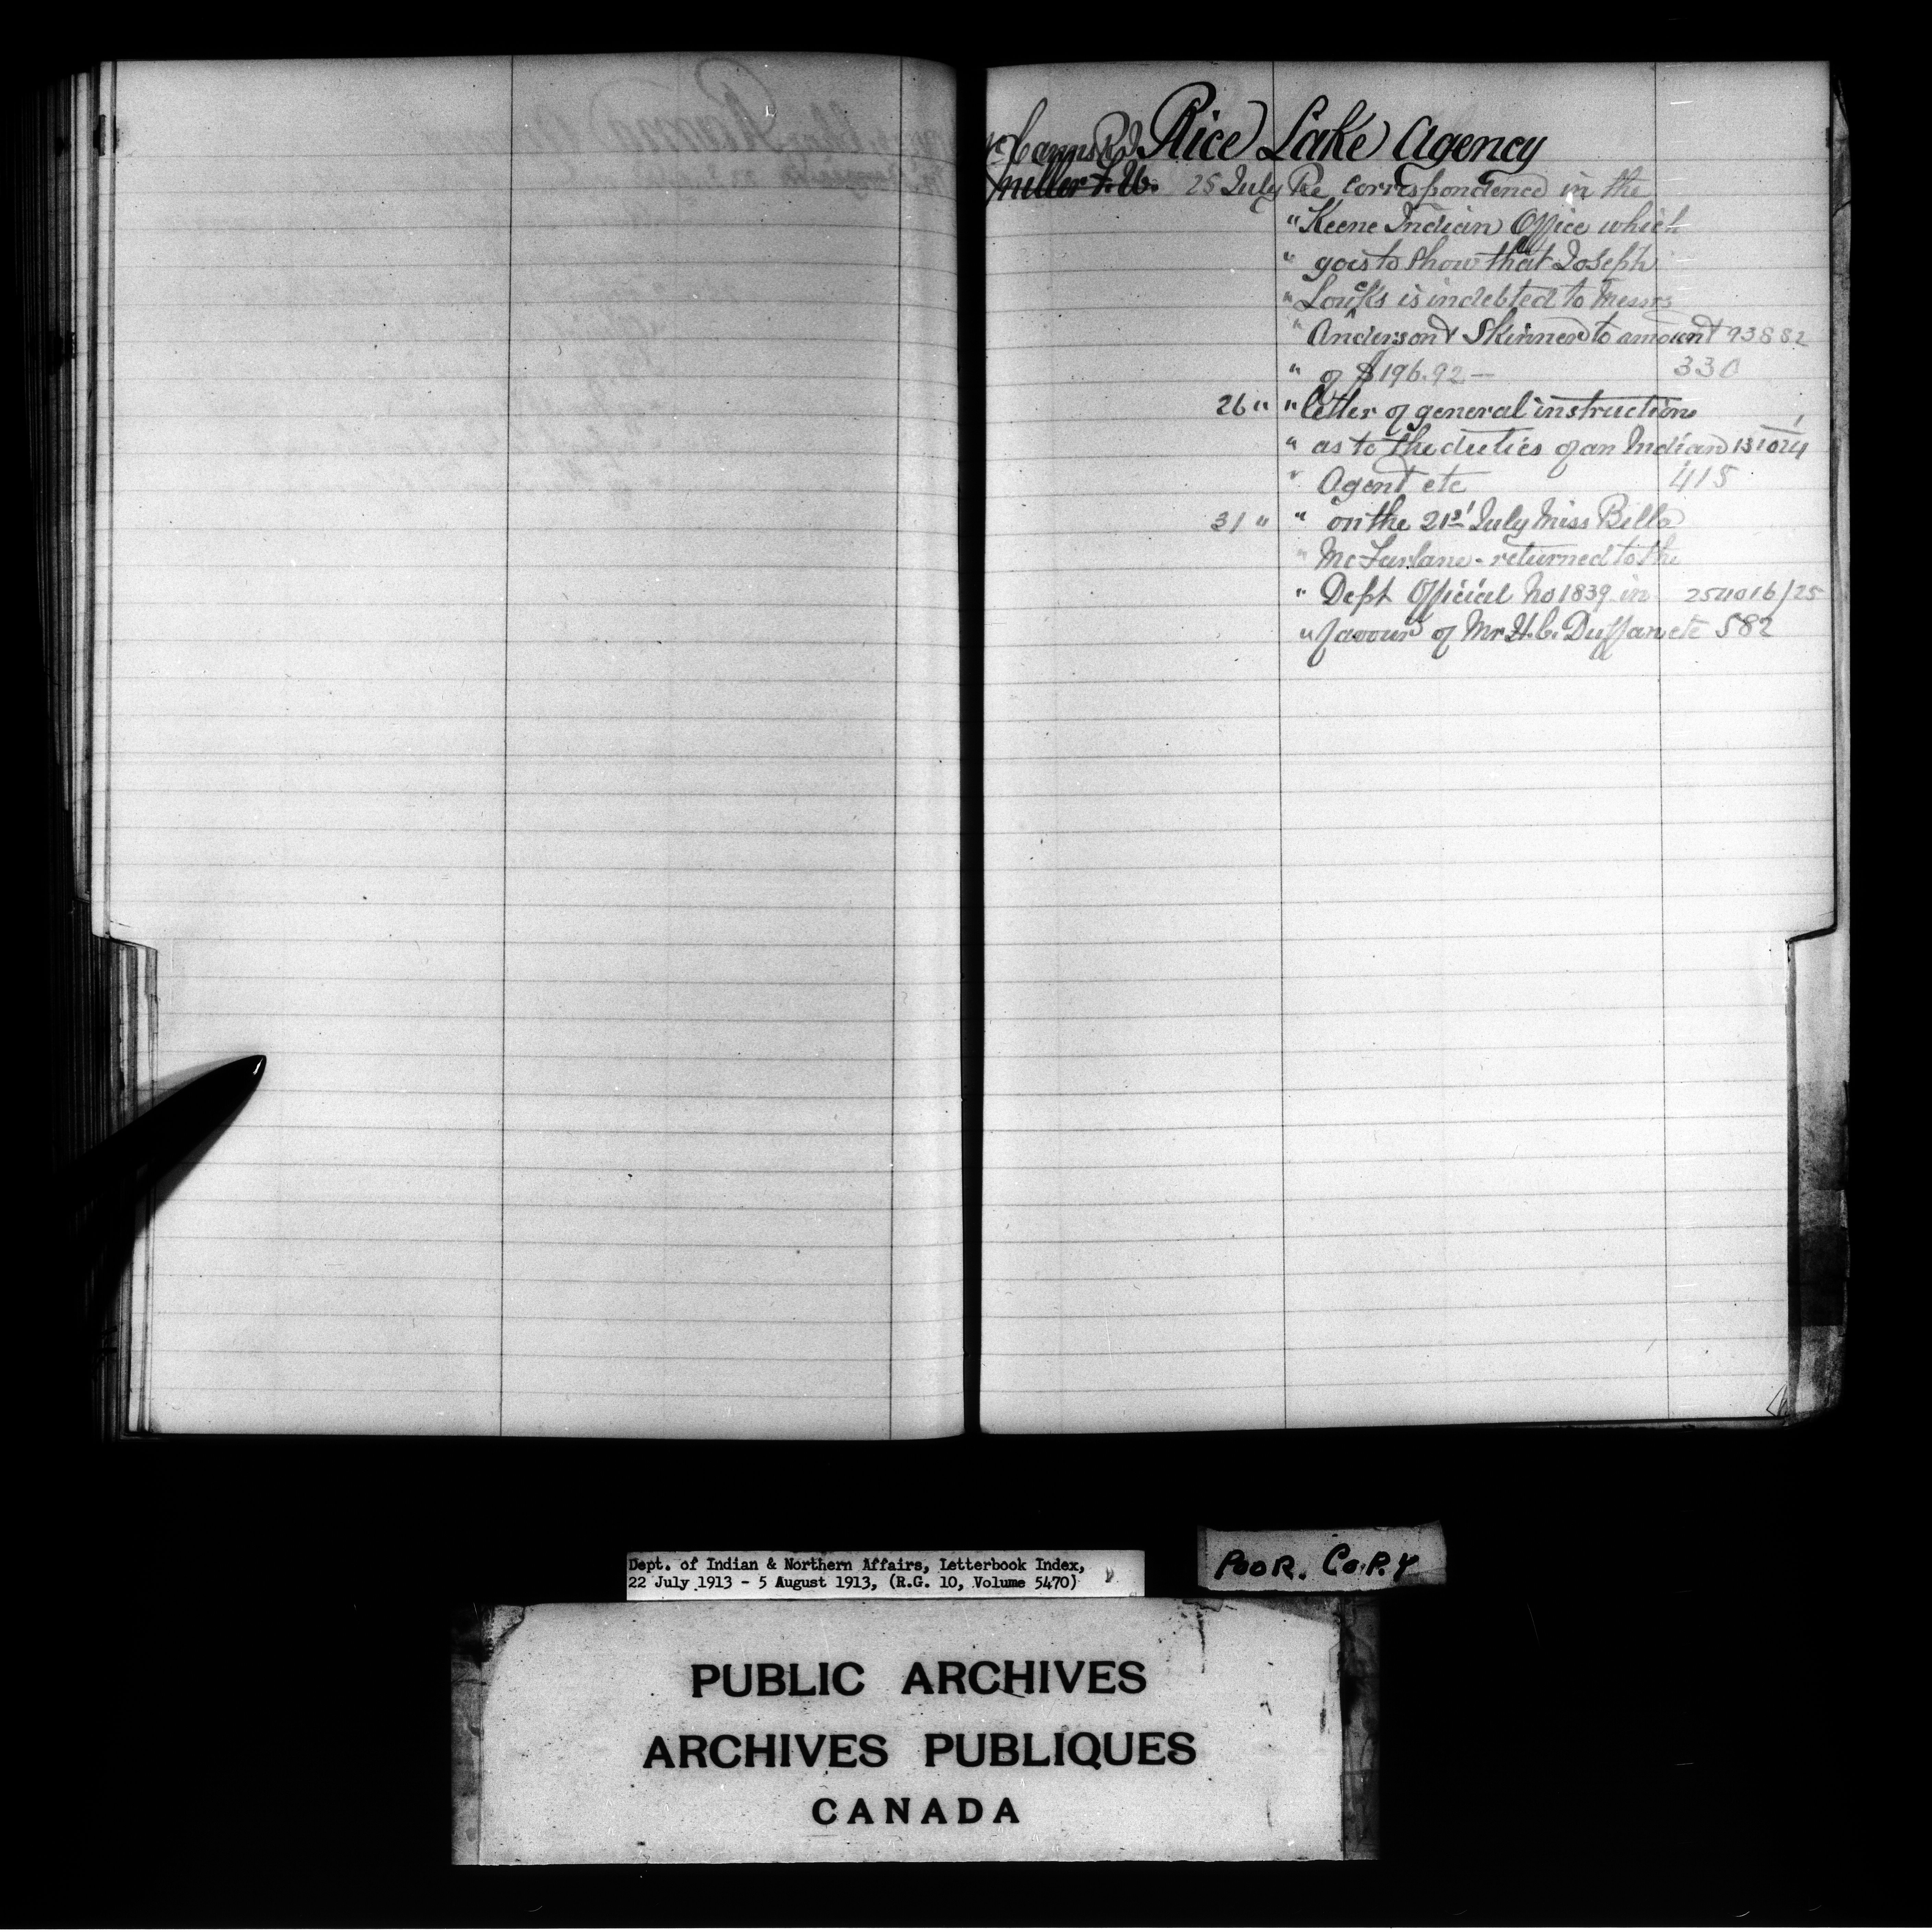 McCanns R.J. Rice Lake Agency
Miller F. W. 25 July Re correspondence in the
" Keene Indian Office which
" goes to show that Joseph
" Loucks is indebted to Messrs
" Anderson & Skinner to amount 93882
" of $196.92 — 330
26 " " letter of general instructions
" as to the duties of an Indian 131024
" Agent etc 415
31 " " on the 21st July Miss Bella
" McFarlane - returned to the
" Dept Official No 1839 in 254016/25
" favour of Mr H.C. Duffan etc 582
Dept. of Indian & Northern Affairs, Letterbook Index,
22 July 1913 - 5 August 1913, (R.G. 10, Volume 5470)
POOR. COPY
PUBLIC ARCHIVES
ARCHIVES PUBLIQUES
CANADA